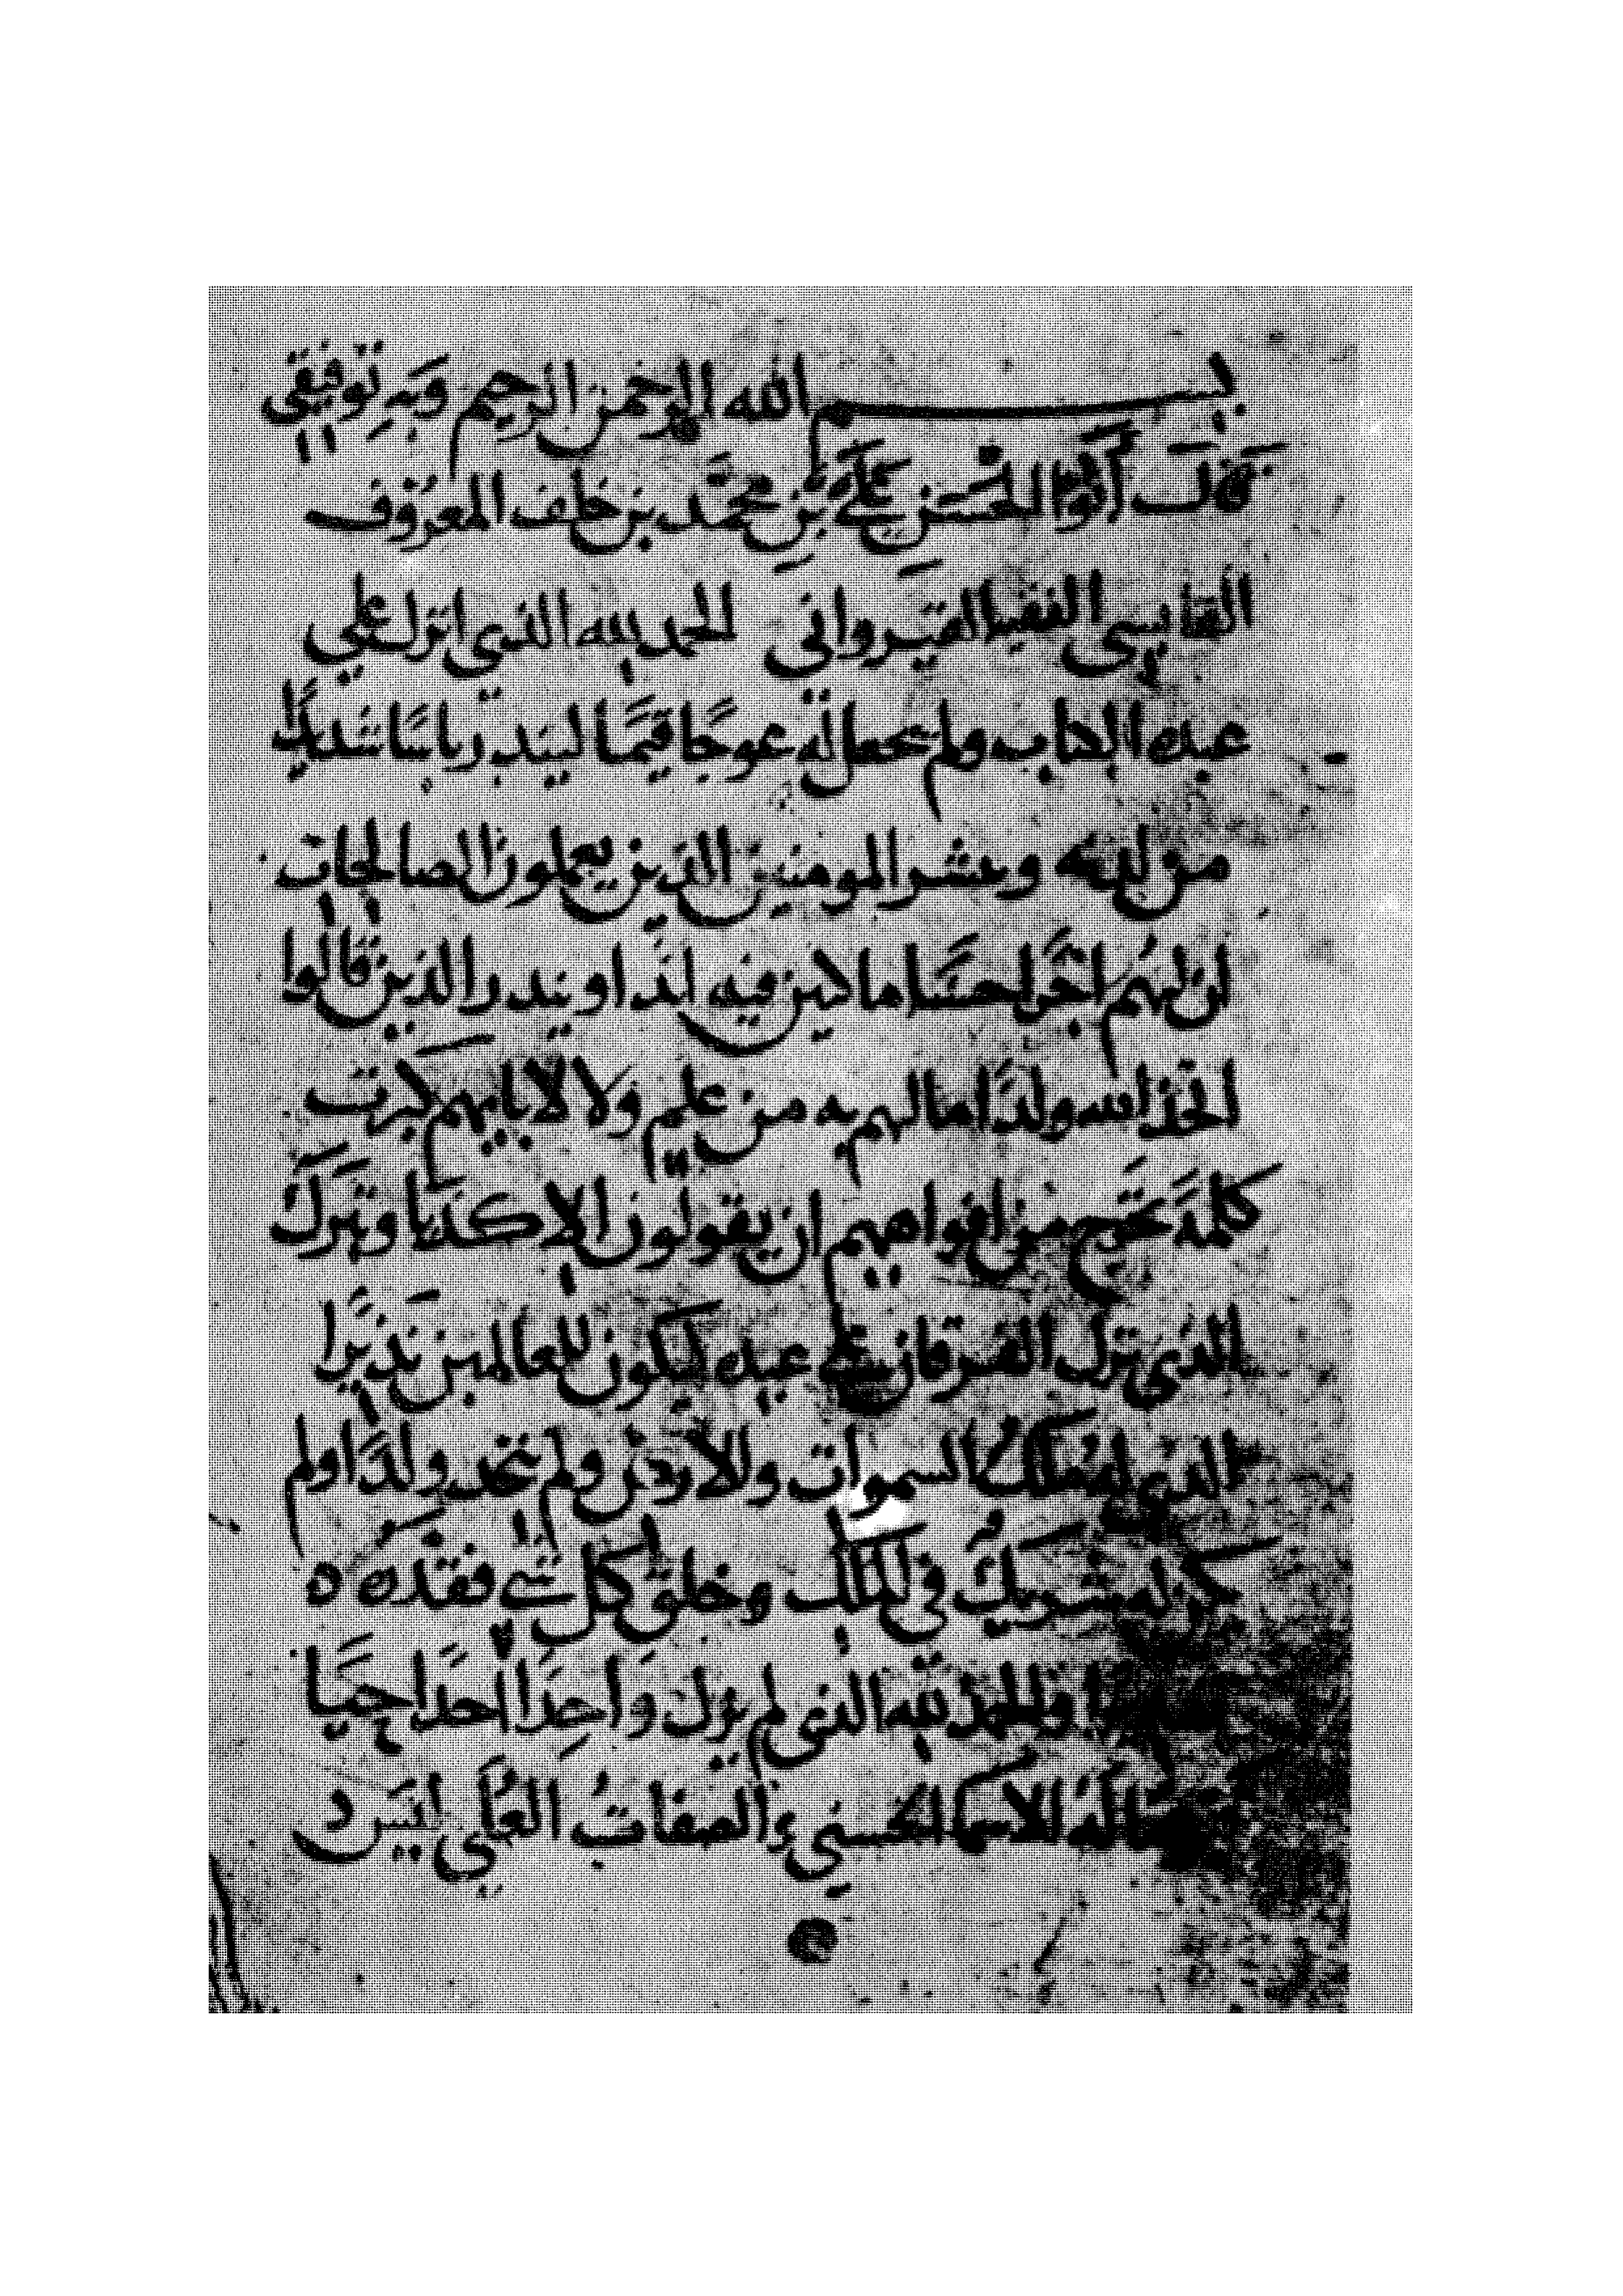 بسم الله الرحمن الرحيم وبه توفيقي
قال أبو الحسن علي بن محمد بن خلف المعروف
القابسي الفقيه القيرواني الحمد لله الذي انزل علي
عبده الكتاب ولم يجعل له عوجًا قيمًا لينذر باسًا شديدًا
من لدنه ويبشر المومنين الذين يعملون الصالحات
ان لهم اجرًا حسنًا ماكثين فيه ابدا وينذر الذين قالوا
اتخذ الله ولدًا ما لهم به من علم ولا لابايهم كبرت
كلمةً تخرج من افواههم ان يقولون الا كذبًا وتبرك
الذي نزل الفرقان علي عبده ليكون للعالمين نذيرًا
الذي له ملك السموات والارض ولم يتخذ ولدًا ولم
يكن له شريكٌ في الملك وخلق كل شي فقدره ه
والحمد لله الذي لم يزل واحدًا احدًا حيًا
له الاسما الحسنى والصفات العُلى ليس